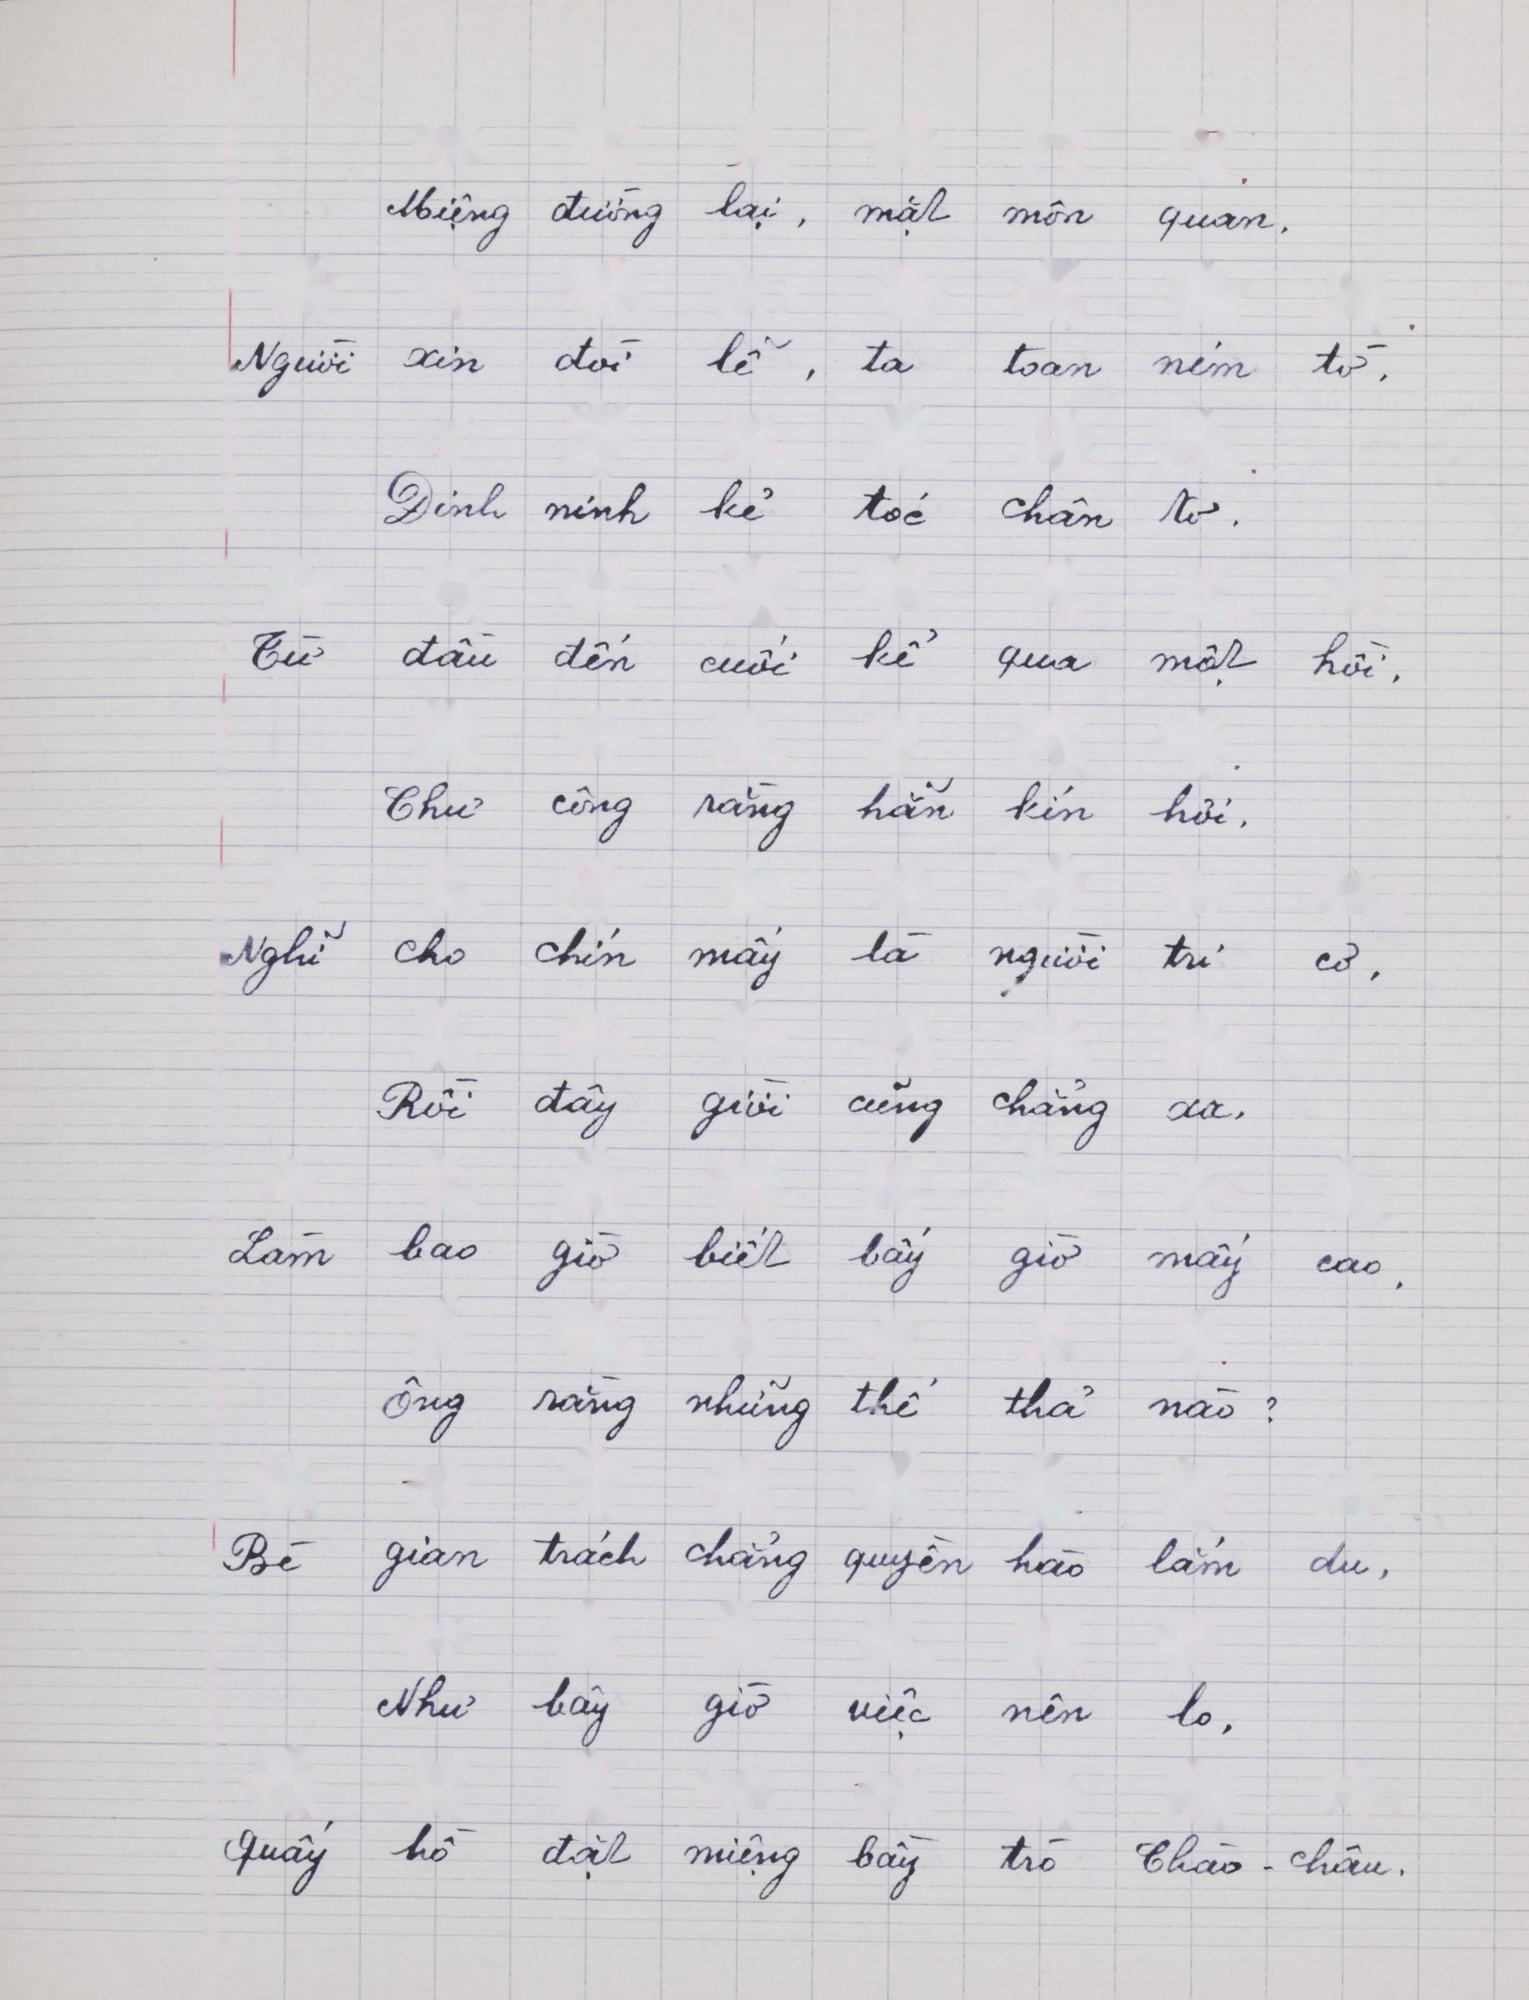 Miệng dường lại, mặt môn quan.
Người xin đòi lễ, ta toan ném tờ.
Đinh ninh kẻ tóc chân tơ.
Từ đầu đến cuối kể qua một hồi.
Thư công rằng hẵn kín hôi.
Nghĩ cho chín mấy là người trí cơ,
Rồi đây giời cũng chẳng xa.
Làm bao giờ biết bấy giờ mấy cao.
Ông rằng những thế thả nào?
Bè gian trách chẳng quyền hào lắm du,
Như bây giờ việc nên lo,
Quấy hồ đặt miệng bầy trò Thào-châu.